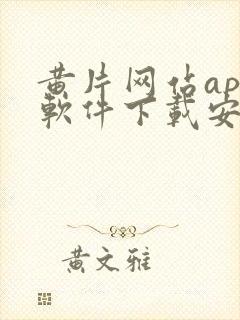 黄片网佔ap
軟件下載安
黄文雅